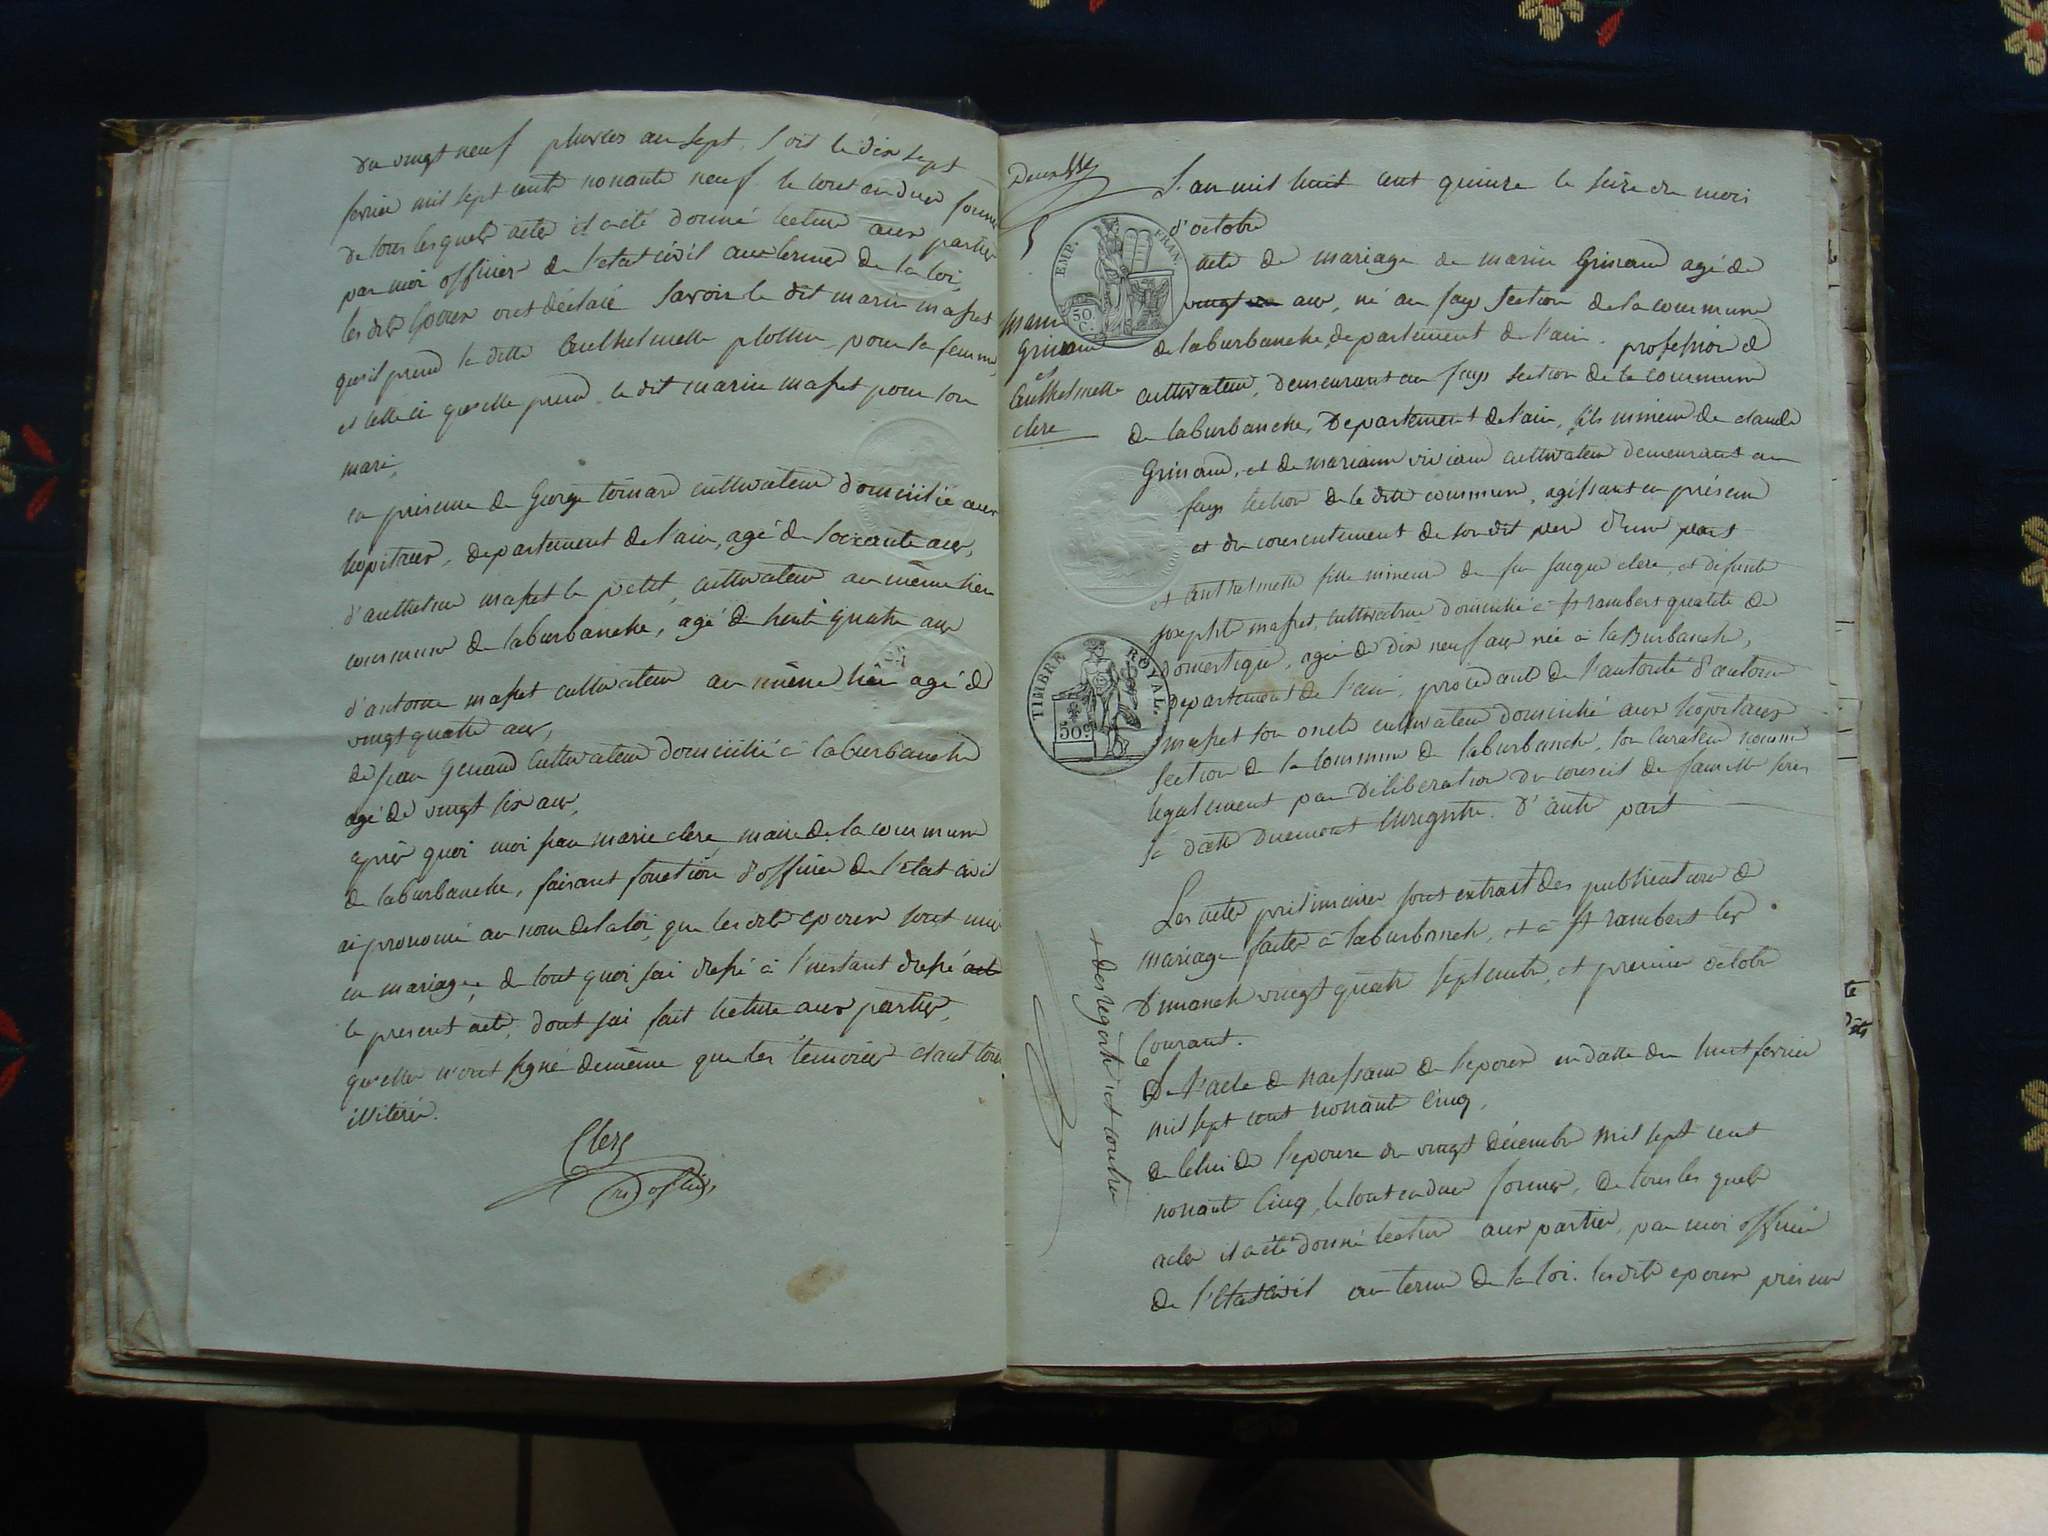 du vingt neuf pluvios an sept, soit le dix sept
fevrier mil sept cente nonante neuf le tout en due forme
de tous lesquels actes il a été donné lecture aux parties
par moi officier de l'etat civil aux termes de la loi,
les dits Epoux ont déclaré savoir le dit marin masset
qu'il prend la ditte Anthelmette plottin pour sa femme
et celle ci qu'elle prend le dit marin masset pour son
mari,
en présence de George tenand cultivateur domicilié aux
hopitaux, departement de l'ain, agé de soixante ans,
d'anthelme masset le petit, cultivateur au même lieu
commune de laburbanche, agé de trente quatre ans
d'antoine masset cultivateur au même lieu agé de
vingt quatre ans,
de jean Genand cultivateur domicilié à laburbanche
agé de vingt six ans,
après quoi moi jean marie clerc maire de la commune
de laburbanche, faisant fonction d'officier de l'etat civil
ai prononcé au nom de la loi, que les dits epoux sont unis
en mariage, de tout quoi j'ai dressé à l'instant dressé acte
le present acte, dont j'ai fait lecture aux parties,
qu'elles n'ont signé demême que les temoins etant tous
illiterés.
Clerc
L'an mil huit cent quinze le seize du mois
d'octobre
acte de mariage de marin Grinand agé de
vingt ans, né au fays section de la commune
de laburbanche, departement de l'ain. profession de
cultivateur, demeurant au fays section de la commune
de laburbanche, Departement de l'ain, fils mineur de claude
Grinand, et de mariann viviand cultivateur demeurant au
fays section de la ditte commune, agissant en présence
et du consentement de son dit pere d'une part
et Anthelmette fille mineure de feu jacque clerc, et defunte
josephte masset, cultivatrice domiciliée à St rambert qualité de
domestique, agée de dix neuf ans née à laBurbanche,
departement de l'ain, procedant de l'autorité d'antoine
masset son oncle cultivateur domicilié aux hopitaux
section de la commune de laburbanche, son curateur nommé
legalement par Déliberation du conseil de famille sous
sa datte duement enregistré. d'autre part
Les actes preliminaires sont extrait des publications de
mariage faites à laburbanche, et à St rambert les
Dimanche vingt quatre septembre, et premier octobre
Courant.
De l'acte de naissance de l'epoux en datte du huit fevrier
mil sept cent nonante Cinq,
de celui de l'epouse du vingt décembre mil sept cent
nonante Cinq, le tout en due forme, de tous les quels
actes il a été donné lecture aux parties, par moi officier
de l'etat civil aux terme de la loi. les dits epoux présens
Marin
Grinand
et
Anthelmette
clerc
EMP. FRAN.
50 C.
TIMBRE ROYAL.
50c